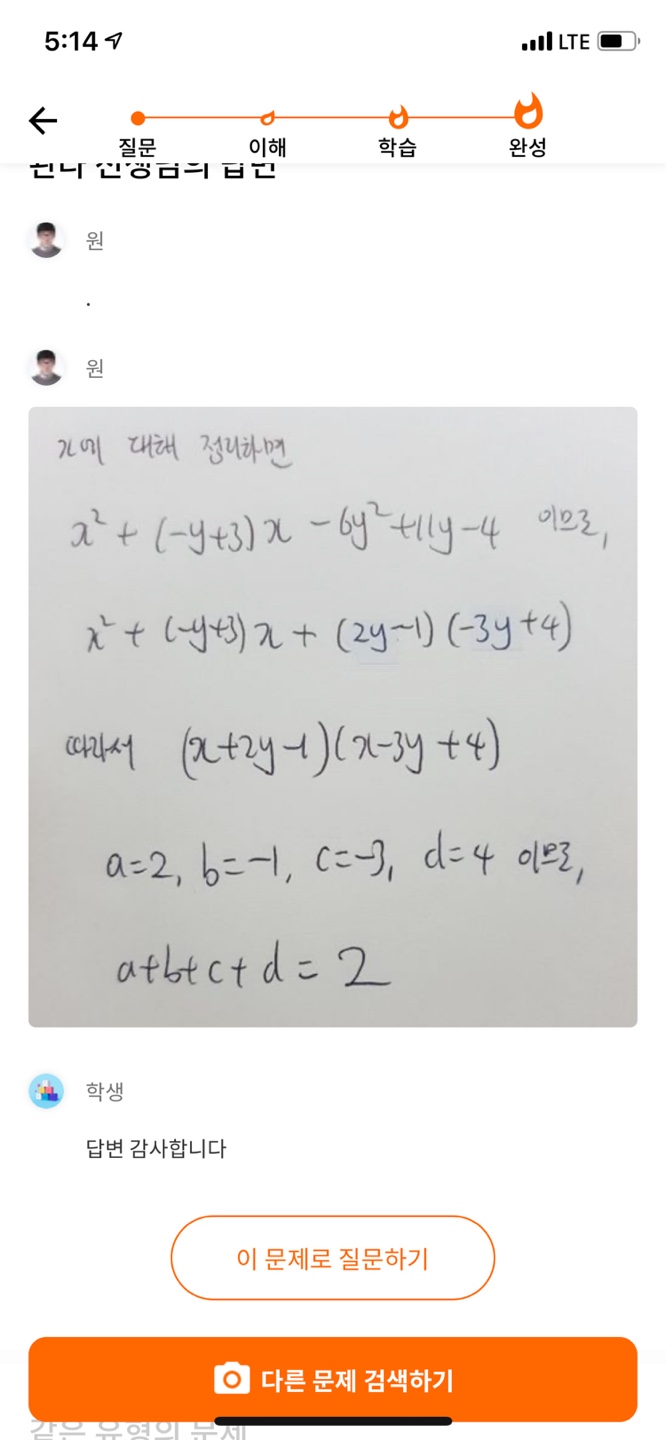 5:14
LTE
질문 이해 학습 완성
선생님의 답변
원
.
원
x에 대해 정리하면
x² + (-y+3)x - 6y²+11y-4 이므로,
x² + (-y+3)x + (2y-1)(-3y+4)
따라서 (x+2y-1)(x-3y+4)
a=2, b=-1, c=-3, d=4 이므로,
a+b+c+d = 2
학생
답변 감사합니다
이 문제로 질문하기
다른 문제 검색하기
같은 유형의 문제